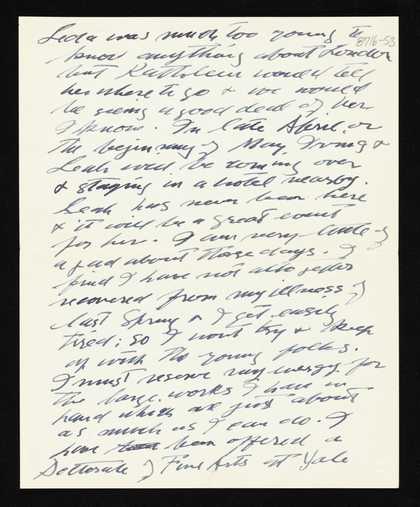 Leda was much too young to
8716-53
know anything about London
but Kathleen would tell
her where to go & we would
be seeing a good deal of her
I know. In late April, or
the beginning of May, Irving &
Leah will be coming over
& staying in a hotel nearby.
Leah has never been here
& it will be a great event
for her. I am very little of
a gad about these days. I
find I have not altogether
recovered from my illness of
last Spring & I get easily
tired; so I won't try & keep
up with the young folks.
I must reserve my energy for
the large works I have in
hand which are just about
as much as I can do. I
have been offered a
Doctorate of Fine Arts at Yale